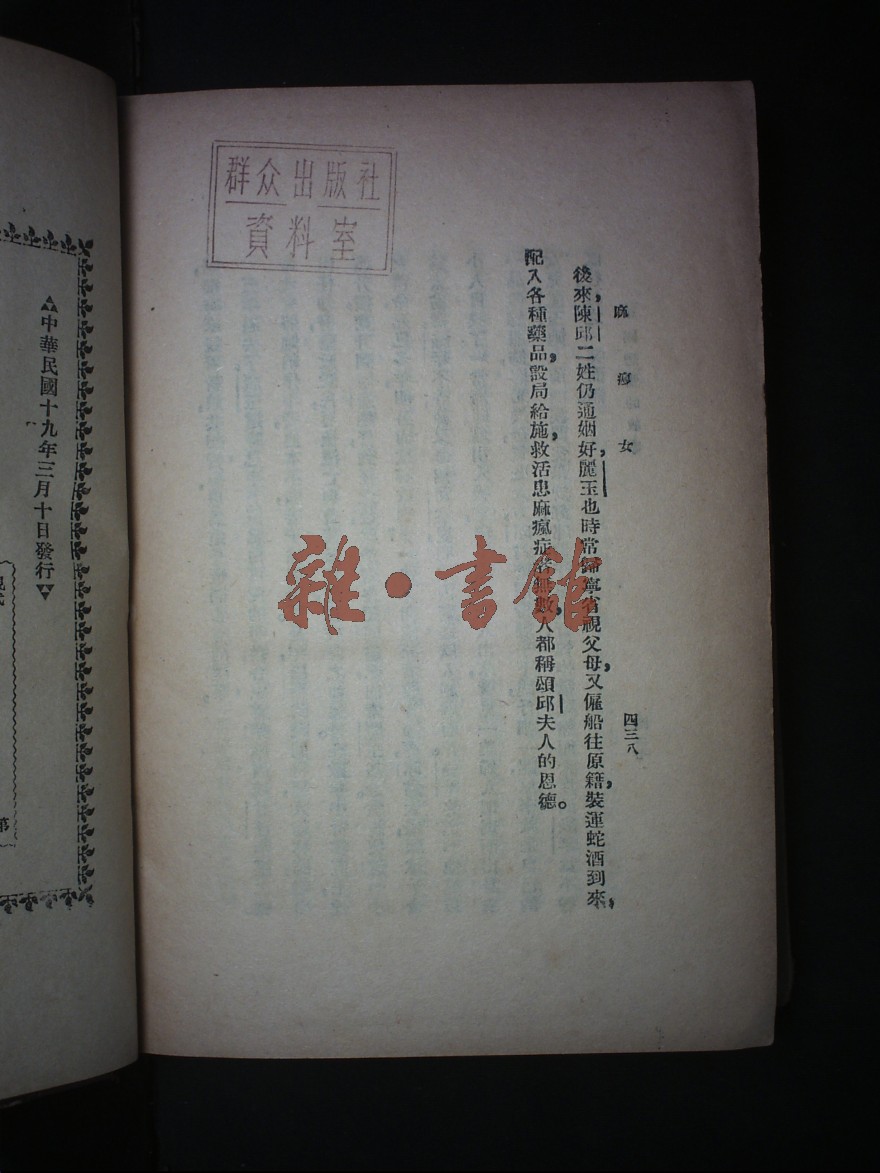 群众出版社
資料室
麻瘋女
四三八
後來,陳邱二姓仍通姻好,麗玉也時常歸寧省視父母,又僱船往原籍,裝運蛇酒到來,
配入各種藥品,設局給施,救活患麻瘋症者無數,人都稱頌邱夫人的恩德。
雜·書館
中華民國十九年三月十日發行
第